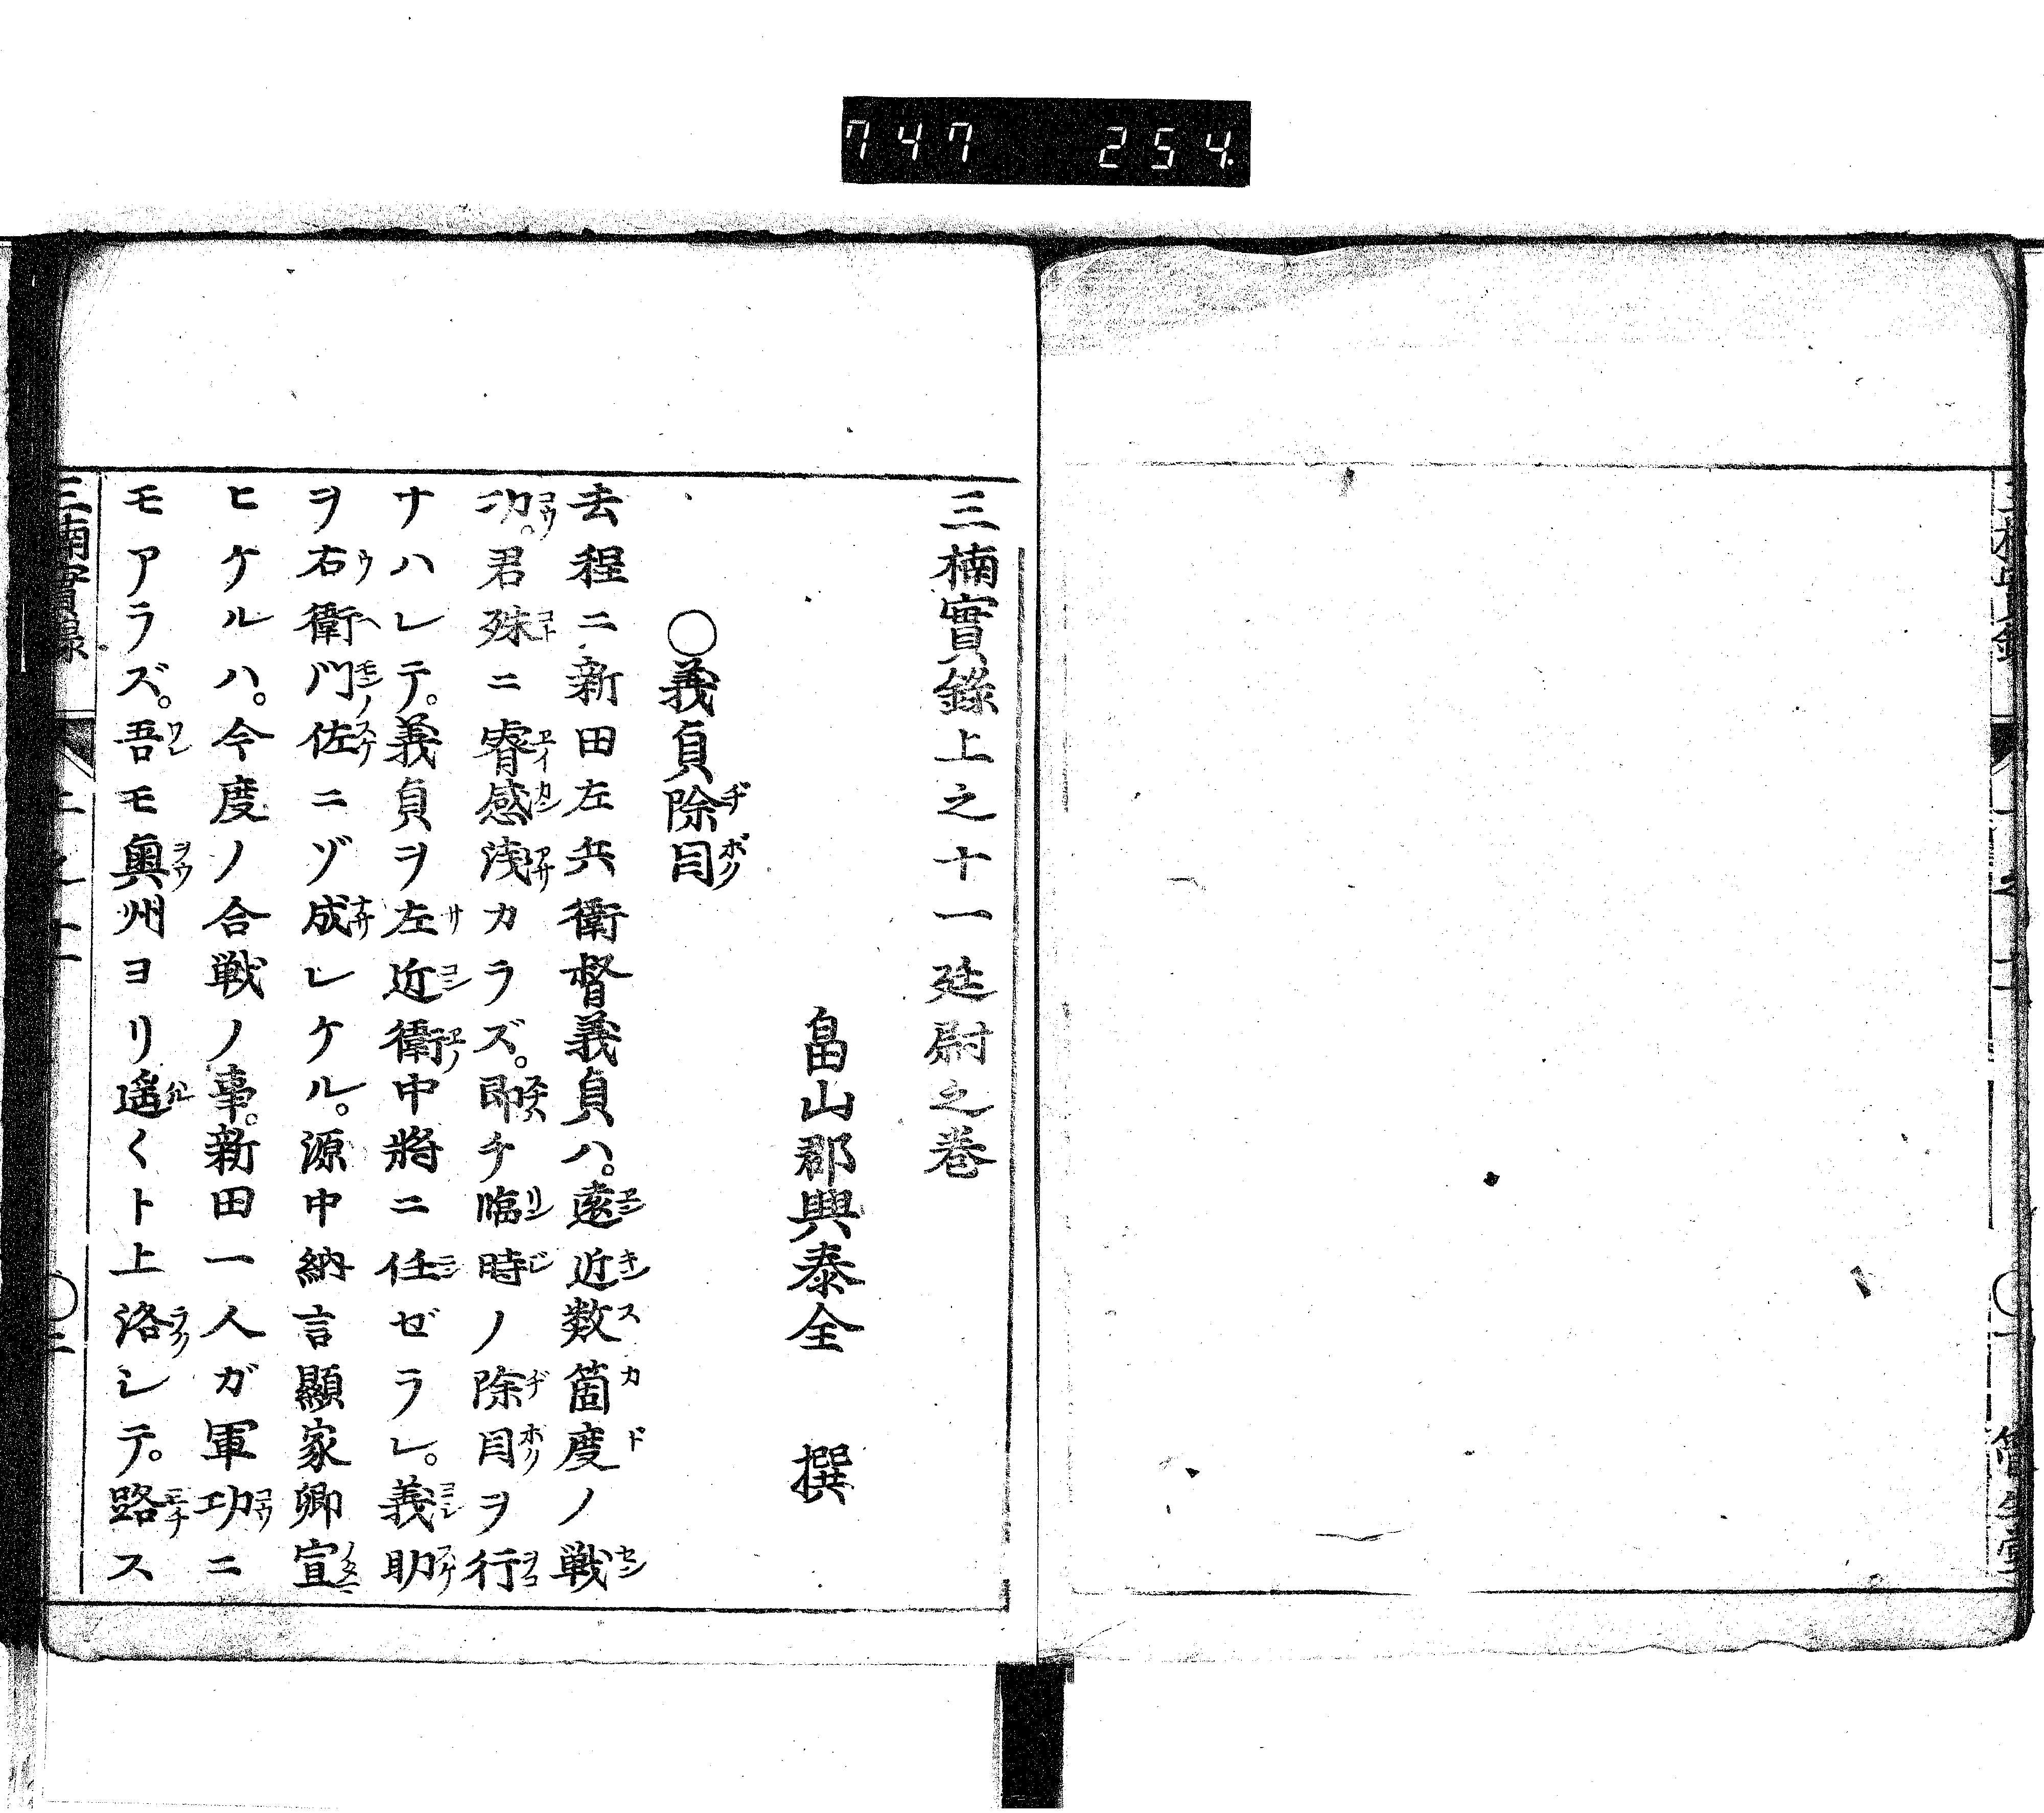 747 254.
三楠實錄上之十一 廷尉之巻
畠山郡興泰全 撰
○義貞除目
去程ニ新田左兵衛督義貞ハ。遠近数箇度ノ戦
功。君殊ニ睿感浅カラズ。即チ臨時ノ除目ヲ行
ナハレテ。義貞ヲ左近衛中將ニ任ゼラレ。義助
ヲ右衛門佐ニゾ成レケル。源中納言顯家卿宣
ヒケルハ。今度ノ合戦ノ事。新田一人ガ軍功ニ
モアラズ。吾モ奥州ヨリ遥〱ト上洛レテ。路ス
三楠實録